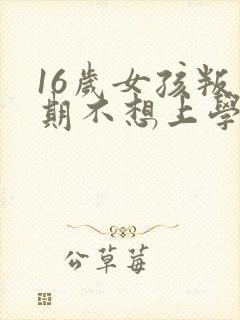 16歲女孩叛
期不想上學
公草莓